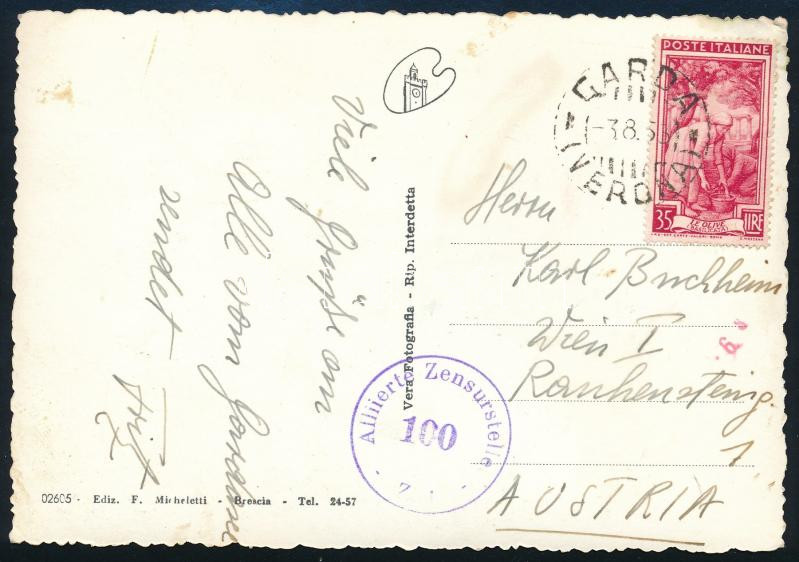 Viele Grüße an
Alle vom Gardasee
sendet
Fritz
02605 - Ediz. F. Micheletti - Brescia - Tel. 24-57
Vera Fotografia - Rip. Interdetta
Alliierte Zensurstelle
100
Z
GARDA
-3.8.53
(VERONA)
POSTE ITALIANE
35 LIRE
LE OLIVE
Herrn
Karl Buchheim
Wien I
Rauhensteing.
1
AUSTRIA